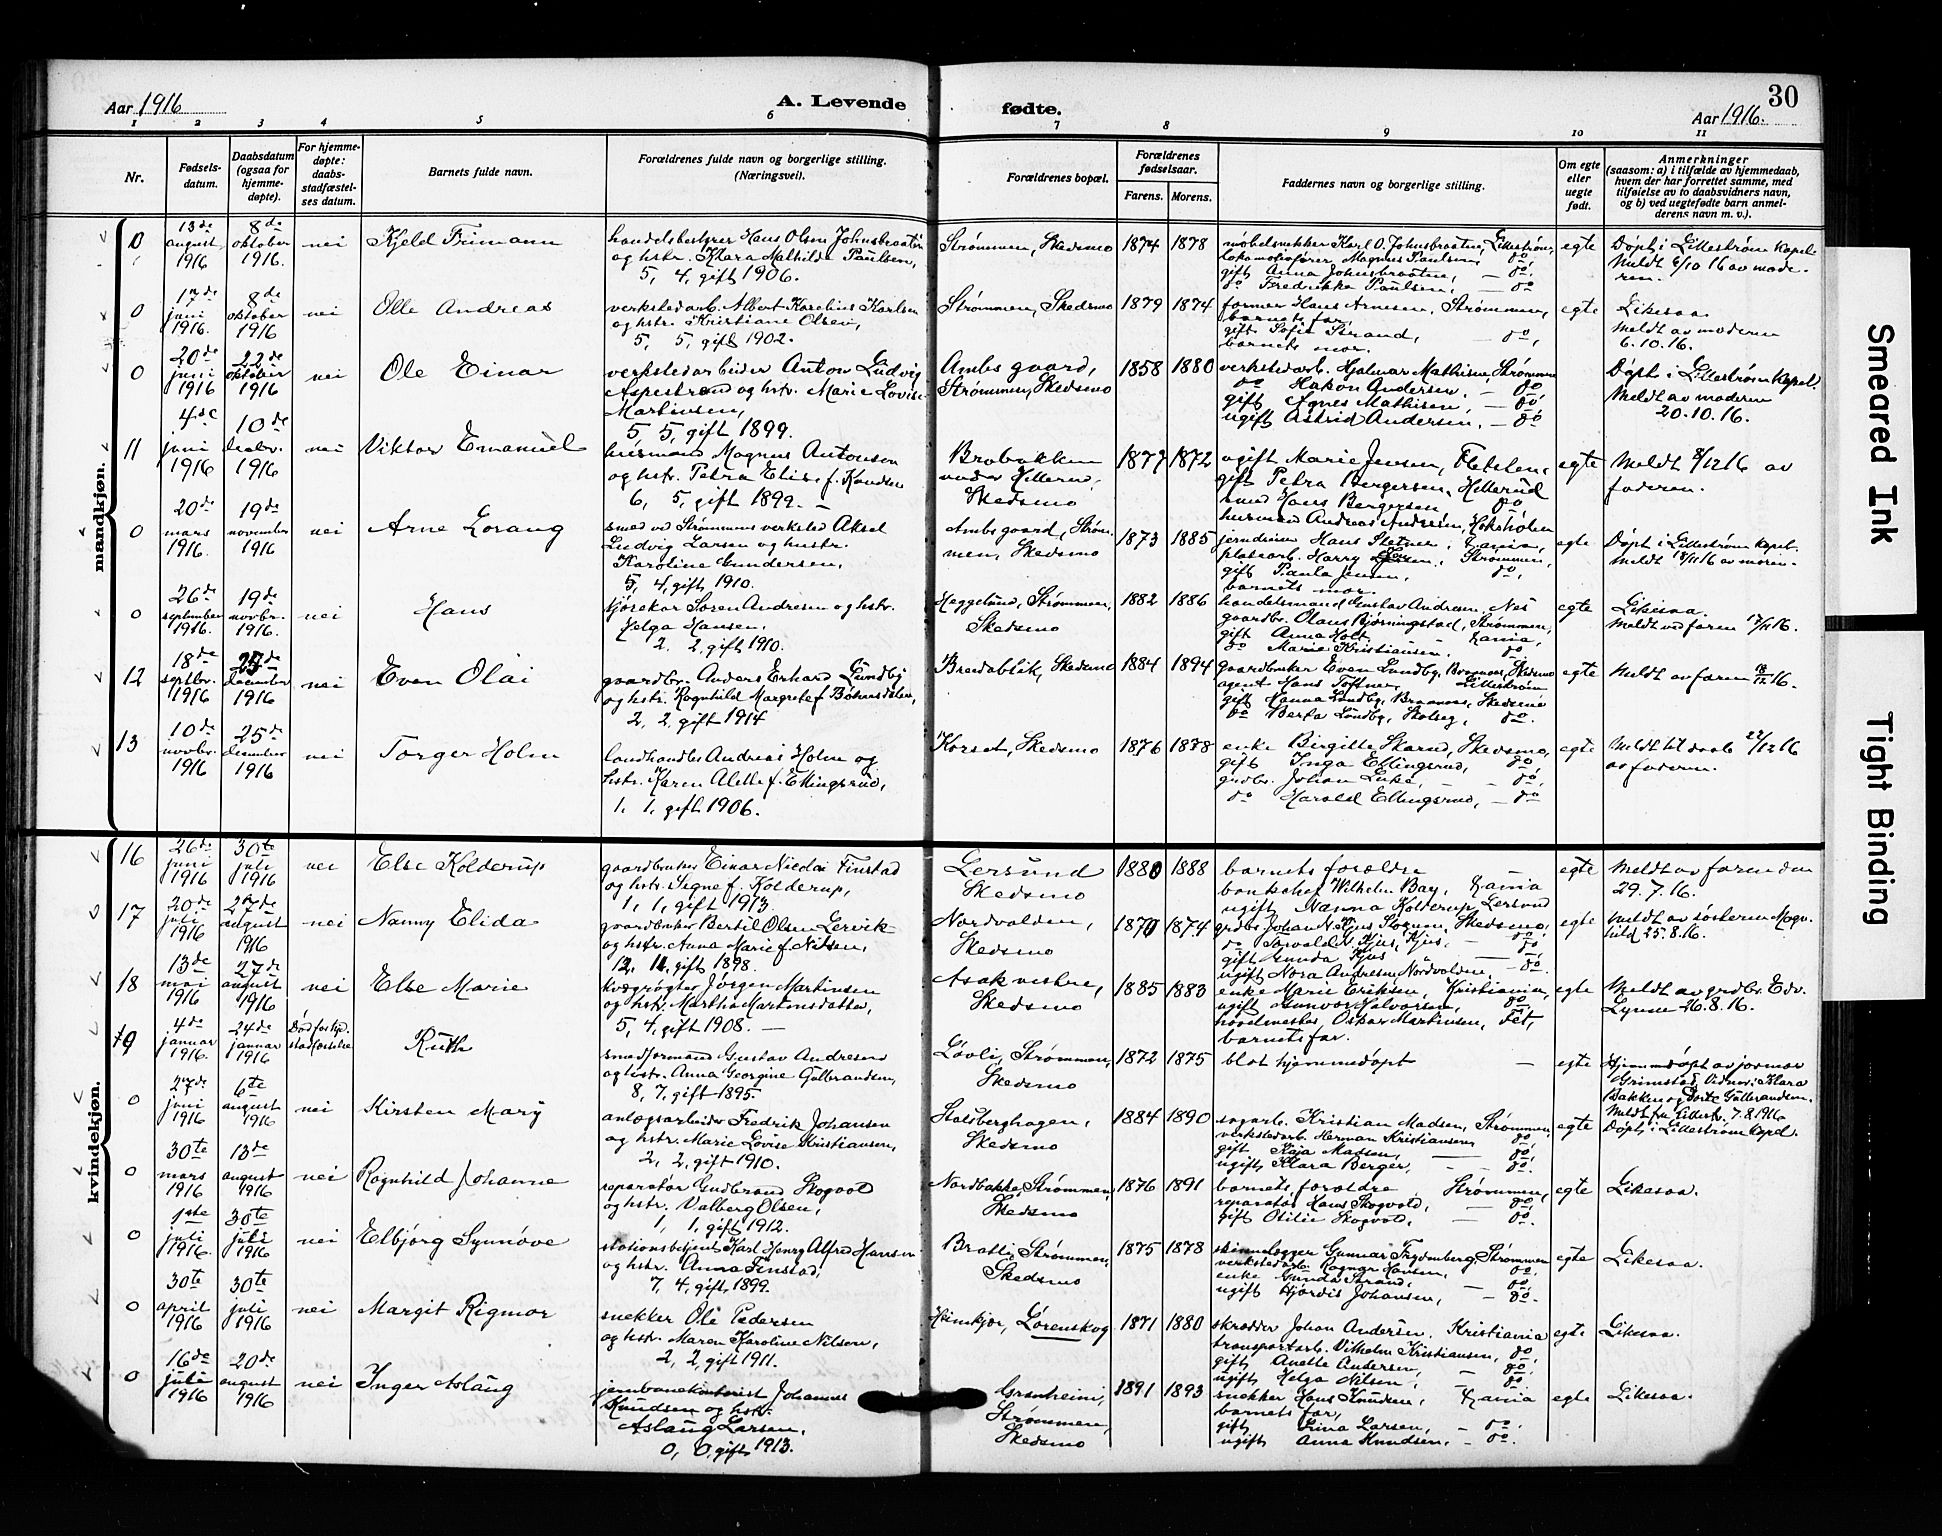 Aar 1916
A. Levende
fødte.
Aar 1916.
30
1 2 3 4 5 6 7 8 9 10 11
Nr.
Fødsels-
datum.
Daabsdatum
(ogsaa for
hjemme-
døpte).
For hjemme-
døpte:
daabs-
stadfæstel-
ses datum.
Barnets fulde navn.
Forældrenes fulde navn og borgerlige stilling.
(Næringsvei).
Forældrenes bopæl.
Forældrenes
fødselsaar.
Farens. Morens.
Faddernes navn og borgerlige stilling.
Om egte
eller
uegte
født.
Anmerkninger
(saasom: a) i tilfælde av hjemmedaab,
hvem der har forrettet samme, med
tilføielse av to daabsvidners navn,
og b) ved uegtefødte barn anmel-
derens navn m. v.).
mandkjøn.
0
13de
august
1916
8de
oktober
1916.
nei
Kjeld Frimann
handelsbestyrer Hans Olsen Johnsbraaten
og hstr. Klara Mathilde Paulsen,
5, 4, gift 1906.
Strømmen, Skedsmo
1874 1878
møbelsnekker Karl O. Johnsbraaten, Lillestrøm,
lokomotivfører Magnus Paulsen, do,
gift Anna Johnsbraaten, — do,
do Fredrikke Paulsen, — do
egte
Døpt i Lillestrøm kapel.
Meldt 6/10 16 av mode-
ren.
0
17de
juni
1916.
8de
oktober
1916
nei
Olle Andreas
verkstedarb. Albert Kornelius Karlsen
og hstr. Kristiane Olsen,
5, 5, gift 1902.
Strømmen, Skedsmo
1879 1874
former Hans Arnesen, Strømmen,
barnets far,
gift Sofie Strand, — do,
barnets mor.
egte
Likesaa
Meldt av moderen
6.10.16.
0
20de
juni
1916
22de
oktober
1916
nei
Ole Einar
verkstedarbeider Anton Ludvig
Aspestrand og hstr. Marie Lovise
Martinsen,
5, 5, gift 1899.
Ambs gaard,
Strømmen, Skedsmo
1858 1880
verkstedarb. Hjalmar Mathisen, Strømmen
do Hakon Andersen, — do,
gift Agnes Mathisen, — do,
ugift Astrid Andersen, — do
Døpt i Lillestrøm Kapel.
Meldt av moderen
20.10.16.
11
4de
juni
1916
10de
decbr.
1916
nei
Viktor Emanuel
husmand Magnus Antonsen
og hstr. Petra Elise f. Knudsen
6, 5, gift 1899. —
Brobakken
under Hellerud,
Skedsmo
1877 1872
ugift Marie Jensen, Fletelen,
gift Petra Bergersen, Hellerud
smed Hans Bergersen do
husmand Andreas Andersen,
egte
Meldt 8/12 16 av
faderen.
0
20de
mars
1916.
19de
november
1916
nei
Arne Lorang
smed ved Strømmens verksted Aksel
Ludvig Larsen og hustr.
Karoline Gundersen,
5, 4, gift 1910.
Ambs gaard, Strøm-
men, Skedsmo
1873 1885
jerndreier Hans Sletner, Xania,
platearb. Harry Strømmen,
gift Paula Jensen, do,
barnets mor.
egte
Døpt i Lillestrøm kapel.
Meldt 18/11 16 av moren.
0
26de
september
1916.
19de
novbr.
1916.
nei
Hans
kjørekar Søren Andresen og hstr.
Helga Hansen,
2, 2, gift 1910.
Heggelund, Strømmen,
Skedsmo
1882 1886
handelsmand Gustav Andresen, Nes
gaardbr. Olaus Bjørningstad, Strømmen,
gift Anna Holt, Xania,
do Marie Kristiansen, do
egte
Likesaa.
Meldt ved faren 17/11 16.
12
18de
septbr.
1916
25de
december
1916
nei
Even Olai
gaardbr. Anders Erhard Lundby
og hstr. Ragnhild Margrete f. Bohnsdalen,
2, 2, gift 1914
Breidablik, Skedsmo
1884 1894
gaardbruker Even Lundby, Braanaas, Skedsmo
agent Hans Toftner, Lillestrøm
gift Hanna Lundby, Braanaas, Skedsmo
do Berta Lundby, Stalseg, do.
egte
Meldt av faren 18/12 16.
13
10de
novbr.
1916
25de
desember
1916
nei
Torger Holm
landhandler Andreas Holm og
hstr. Karen Alette f. Ellingsrud,
1, 1, gift 1906.
Korset, Skedsmo
1876 1878
enke Birgitte Skarud, Skedsmo,
gift Inga Ellingsrud, do,
grdbr. Johan Enke, — do,
do Harald Ellingsrud, — do
egte
Meldt til daab 22/12 16
av faderen.
kvindekjøn.
16
26de
juni
1916
30te
juli
1916
nei
Else Kolderup
gaardbruker Einar Nicolai Finstad
og hstr. Signe f. Kolderup,
1, 1, gift 1913.
Lersund
Skedsmo
1880 1888
barnets forældre —
bankchef Wilhelm Bay, Xania
ugift Nanna Kolderup Lersund
egte
Meldt av faren den
29.7.16.
17
20de
juli
1916
27de
august
1916
nei
Nanny Elida
gaardbruker Bertil Olsen Lervik
og hstr. Anna Marie f. Nilsen,
12, 11, gift 1898.
Nordvolden,
Skedsmo
1870 1874
grdbr. Johan N. Kjus Skedsmo,
do Torvald Kjus, Kjus, — do,
gift Gunda Kjus — do,
ugift Nora Andresen, Nordvolden, — do.
egte
Meldt av søsteren Magn-
hild 25.8.16.
18
13de
mai
1916
27de
august
1916
nei
Else Marie
kvægrøgter Jørgen Martinsen
og hstr. Martha Martonsdatter,
5, 4, gift 1908. —
Asak vestre,
Skedsmo
1885 1883
enke Marie Eriksen, Kristiania,
ugift Gunvor Halvorsen, do,
hovedmester Oskar Martinsen, Fet,
barnets far.
egte
Meldt av grdbr. Edv.
Lynne 26.8.16.
19
4de
januar
1916.
24de
januar
1916
Død før kp.
stadfæstelse
Ruth
smedformand Gustav Andresen
og hstr. Anna Georgine Gulbrandsen,
8, 7, gift 1895.
Løvli, Strømmen,
Skedsmo
1872 1875
blot hjemmedøpt —
egte
Hjemmedøpt av jormor
Grimstad. Vidner: Klara
Bakken og Dorte Gulbrandsen.
Meldt fra Lillestr. 7.8.1916
0
27de
juni
1916
6te
august
1916
nei
Kirsten Mary
anlægsarbeider Fredrik Johansen
og hstr. Marie Lovise Kristiansen,
2, 2, gift 1910.
Stalsberghagen,
Skedsmo
1884 1890
sagarb. Kristian Madsen, Strømmen,
verkstedarb. Herman Kristiansen, do,
gift Kaja Madsen, — do,
ugift Klara Berger, — do.
egte
Døpt i Lillestrøm Kapel.
0
30te
mars
1916
13de
august
1916
nei
Ragnhild Johanne
reparatør Gudbrand Skogvold
og hstr. Valberg Olsen,
1, 1, gift 1912.
Nordbakke, Strømmen,
Skedsmo
1876 1891
barnets forældre Strømmen,
reparatør Hans Skogvold, — do,
gift Otilie Skogvold, — do.
egte
Likesaa.
0
1ste
juli
1916.
30te
juli
1916
nei
Elbjørg Synnøve
stationsbetjent Karl Henry Alfred Hansen
og hstr. Anna Finstad,
7, 4, gift 1899.
Bratli, Strømmen,
Skedsmo
1875 1878
skinnelægger Gunnar Frydenberg, Strømmen
verkstedarb. Ragnar Hansen, do,
enke Gunda Strand, — do,
ugift Hjørdis Johansen, — do.
egte
Likesaa.
0
30te
april
1916
30te
juli
1916
nei
Margit Rigmor
snekker Ole Pedersen
og hstr. Maren Karoline Nilsen,
2, 2, gift 1911.
Heimkjær, Lørenskog
1871 1880
skrædder Johan Andersen, Kristiania
transportarb. Vilhelm Kristiansen, do,
gift Anette Andersen, do,
ugift Helga Nilsen, do
egte
Likesaa.
0
16de
juli
1916
20de
august
1916
nei
Inger Aslaug
jernbanekontorist Johannes
Knudsen og hstr.
Aslaug Larsen,
0, 0, gift 1913.
Granheim,
Strømmen,
Skedsmo
1891 1893
snekker Hans Knudsen, Xania
barnets far,
gift Lina Larsen, — do.
ugift Anna Knudsen, — do.
egte
Likesaa.
Smeared Ink
Tight Binding